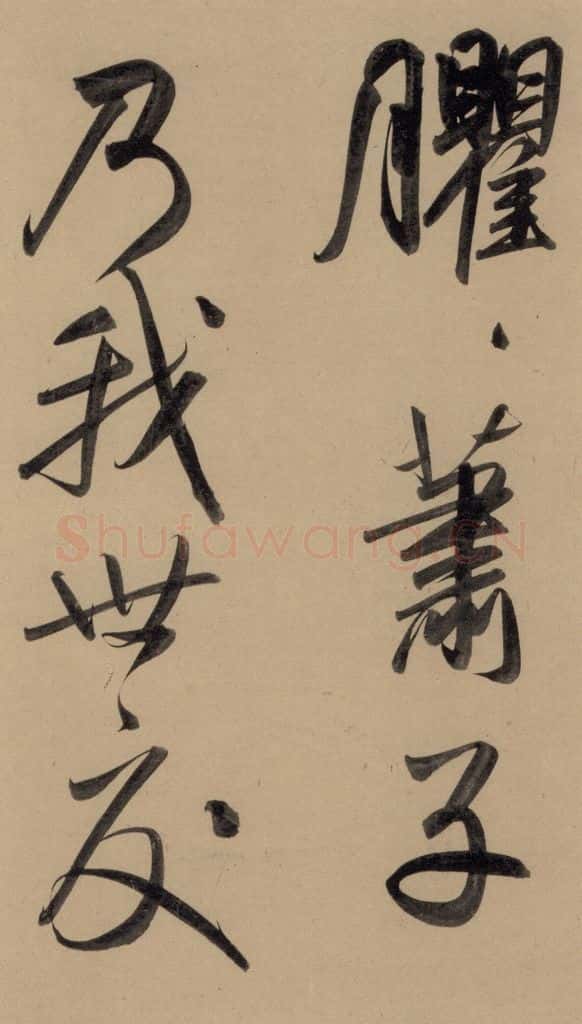 臞〻蕭子
乃我世友
Shufawang.CN